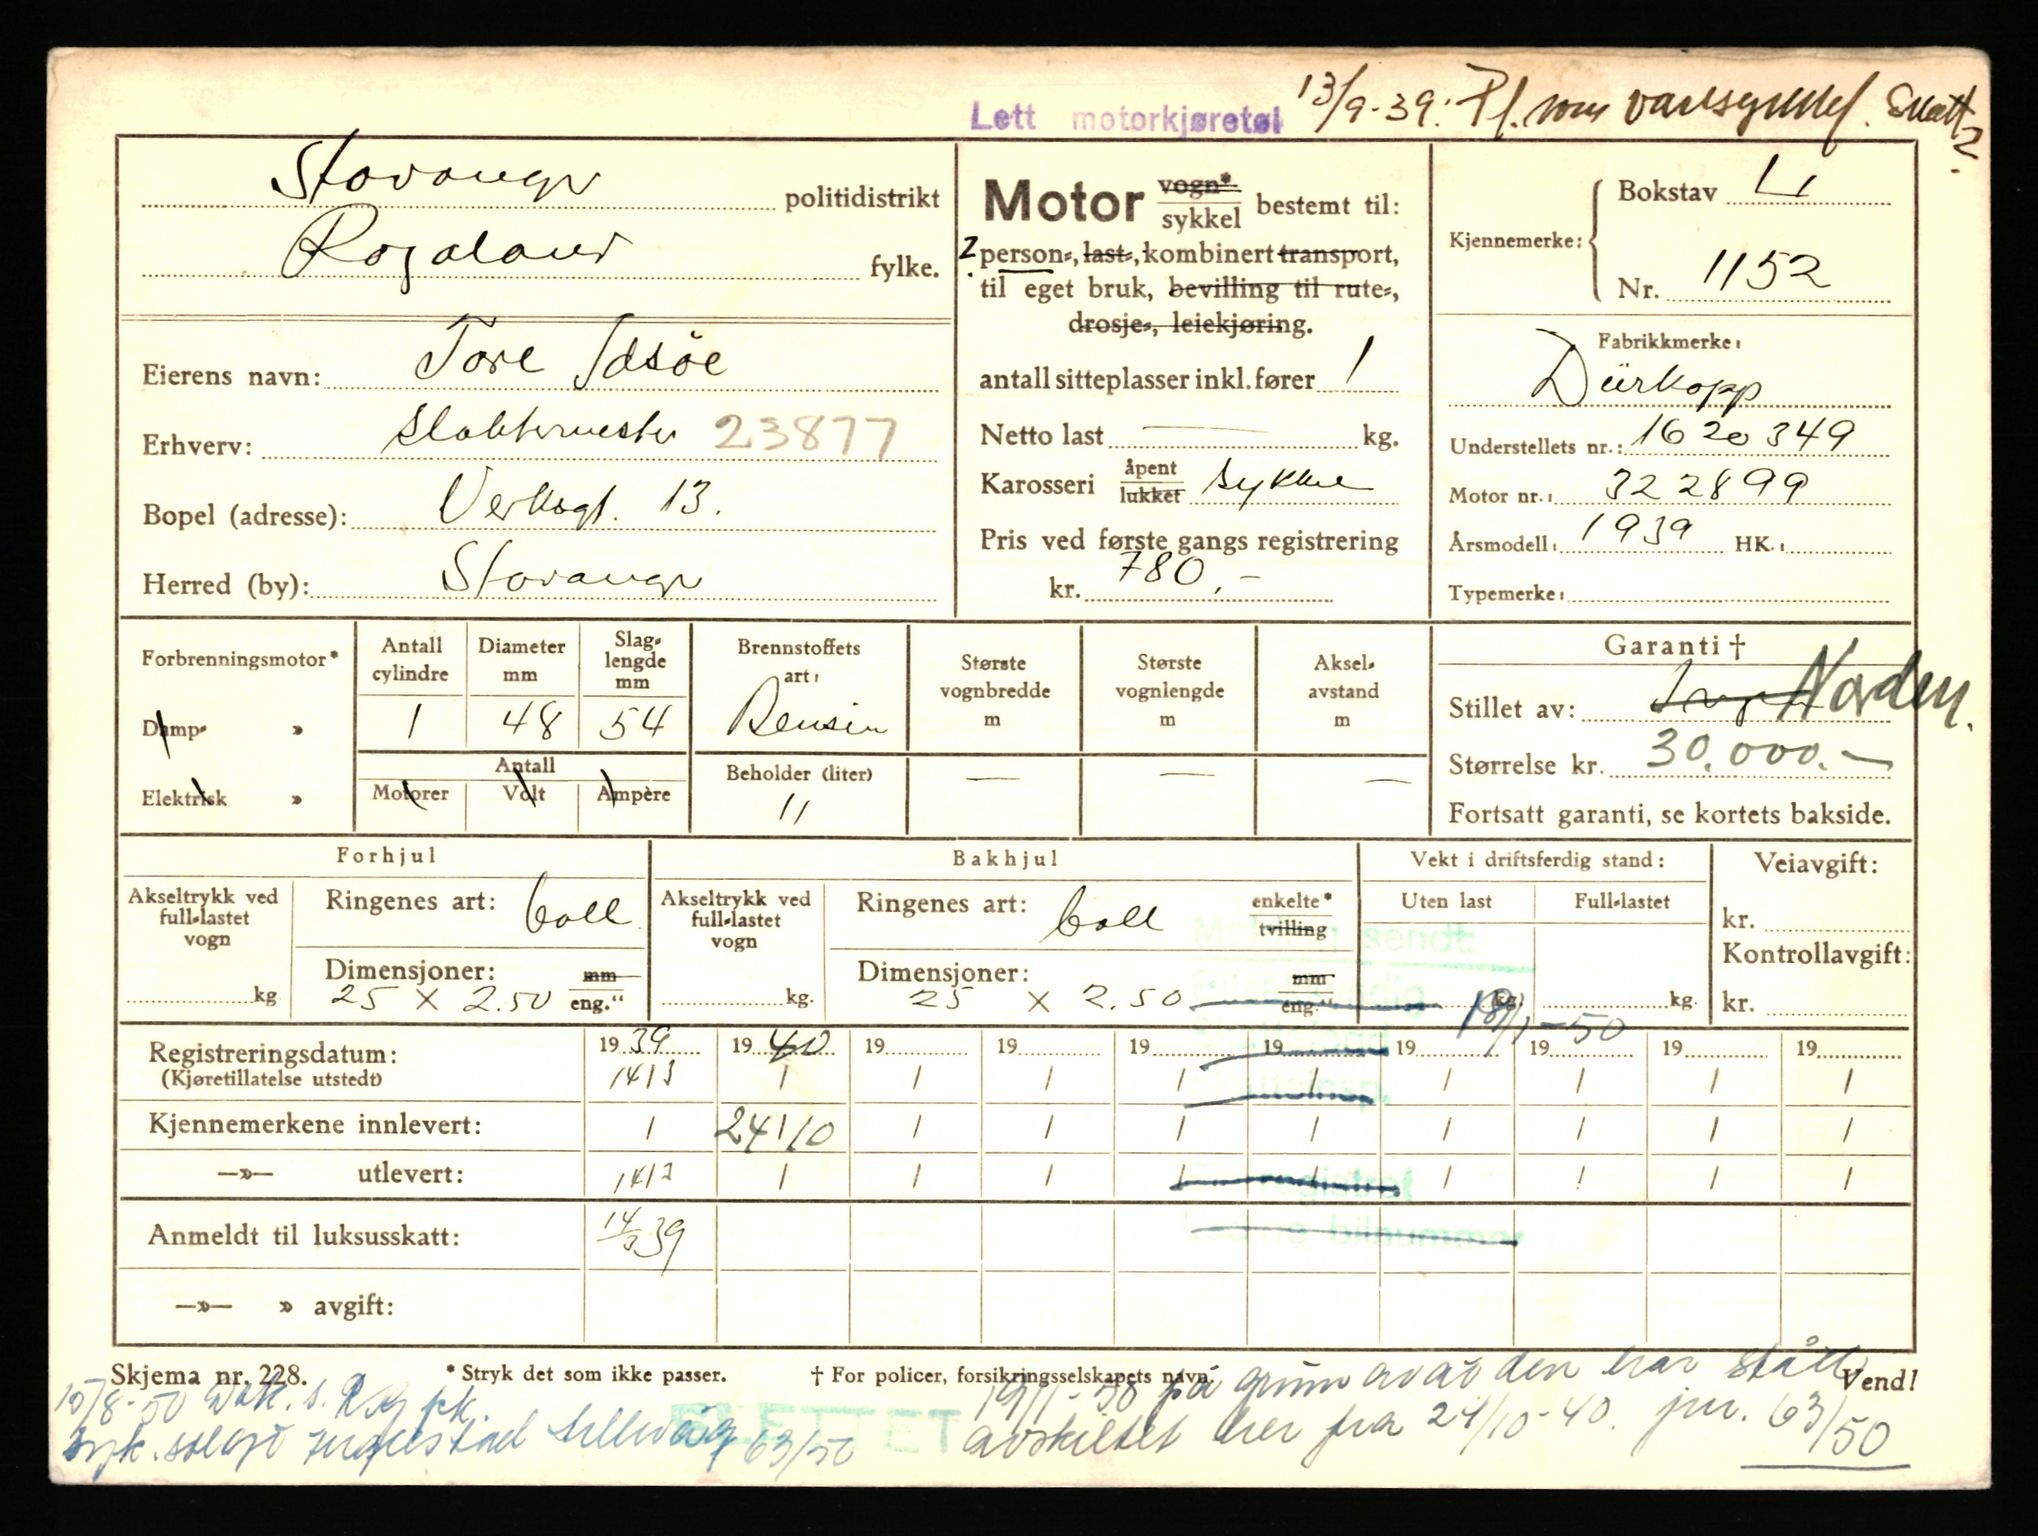 Lett motorkjøretøi 13/9-39. Pl. som varesykkel. Skatt 2.
Stavanger politidistrikt
Rogaland fylke.
Eierens navn: Tore Idsöe
Erhverv: Slaktermester 23877
Bopel (adresse): Verksgt. 13.
Herred (by): Stavanger
Motor vogn* sykkel bestemt til:
2 person-, last-, kombinert transport,
til eget bruk, bevilling til rute-,
drosje-, leiekjøring.
antall sitteplasser inkl. fører 1
Netto last — kg.
Karosseri åpent lukket sykkel
Pris ved første gangs registrering
kr. 780,-
Kjennemerke: Bokstav L
Nr. 1152
Fabrikkmerke:
Dürkopp
Understellets nr.: 1620349
Motor nr.: 322899
Årsmodell: 1939 HK.:
Typemerke:
Forbrenningsmotor*
Damp- »
Elektrisk »
Antall cylindre 1
Diameter mm 48
Slaglengde mm 54
Antall
Motorer Volt Ampère
Brennstoffets art: Bensin
Beholder (liter) 11
Største vognbredde m —
Største vognlengde m —
Akselavstand m —
Garanti †
Stillet av: Norden.
Størrelse kr. 30.000.-
Fortsatt garanti, se kortets bakside.
Forhjul
Akseltrykk ved full-lastet vogn
kg
Ringenes art: Ball
Dimensjoner: mm
25 x 2.50 eng."
Bakhjul
Akseltrykk ved full-lastet vogn
kg.
Ringenes art: Ball enkelte* tvilling
Dimensjoner: mm
25 x 2.50 eng."
Vekt i driftsferdig stand:
Uten last Full-lastet
kg. kg.
Veiavgift:
kr.
Kontrollavgift:
kr.
sendt:
19/1-50
Registreringsdatum: 1939 1940 19 19 19 19 19 19 19 19
(Kjøretillatelse utstedt) 14/3 / / / / / / / / /
Kjennemerkene innlevert: / 24/10 / / / / / / / /
—»— utlevert: 14/3 / / / / / / / / /
registret
bilnummer
Anmeldt til luksusskatt: 14/3 39
—»— » avgift:
Skjema nr. 228. * Stryk det som ikke passer. † For policer, forsikringsselskapets navn. Vend!
SLETTET 19/1-50 på grunn av at den har stått
avskiltet her fra 24/10-40. jnr. 63/50
15/8-50
63/50